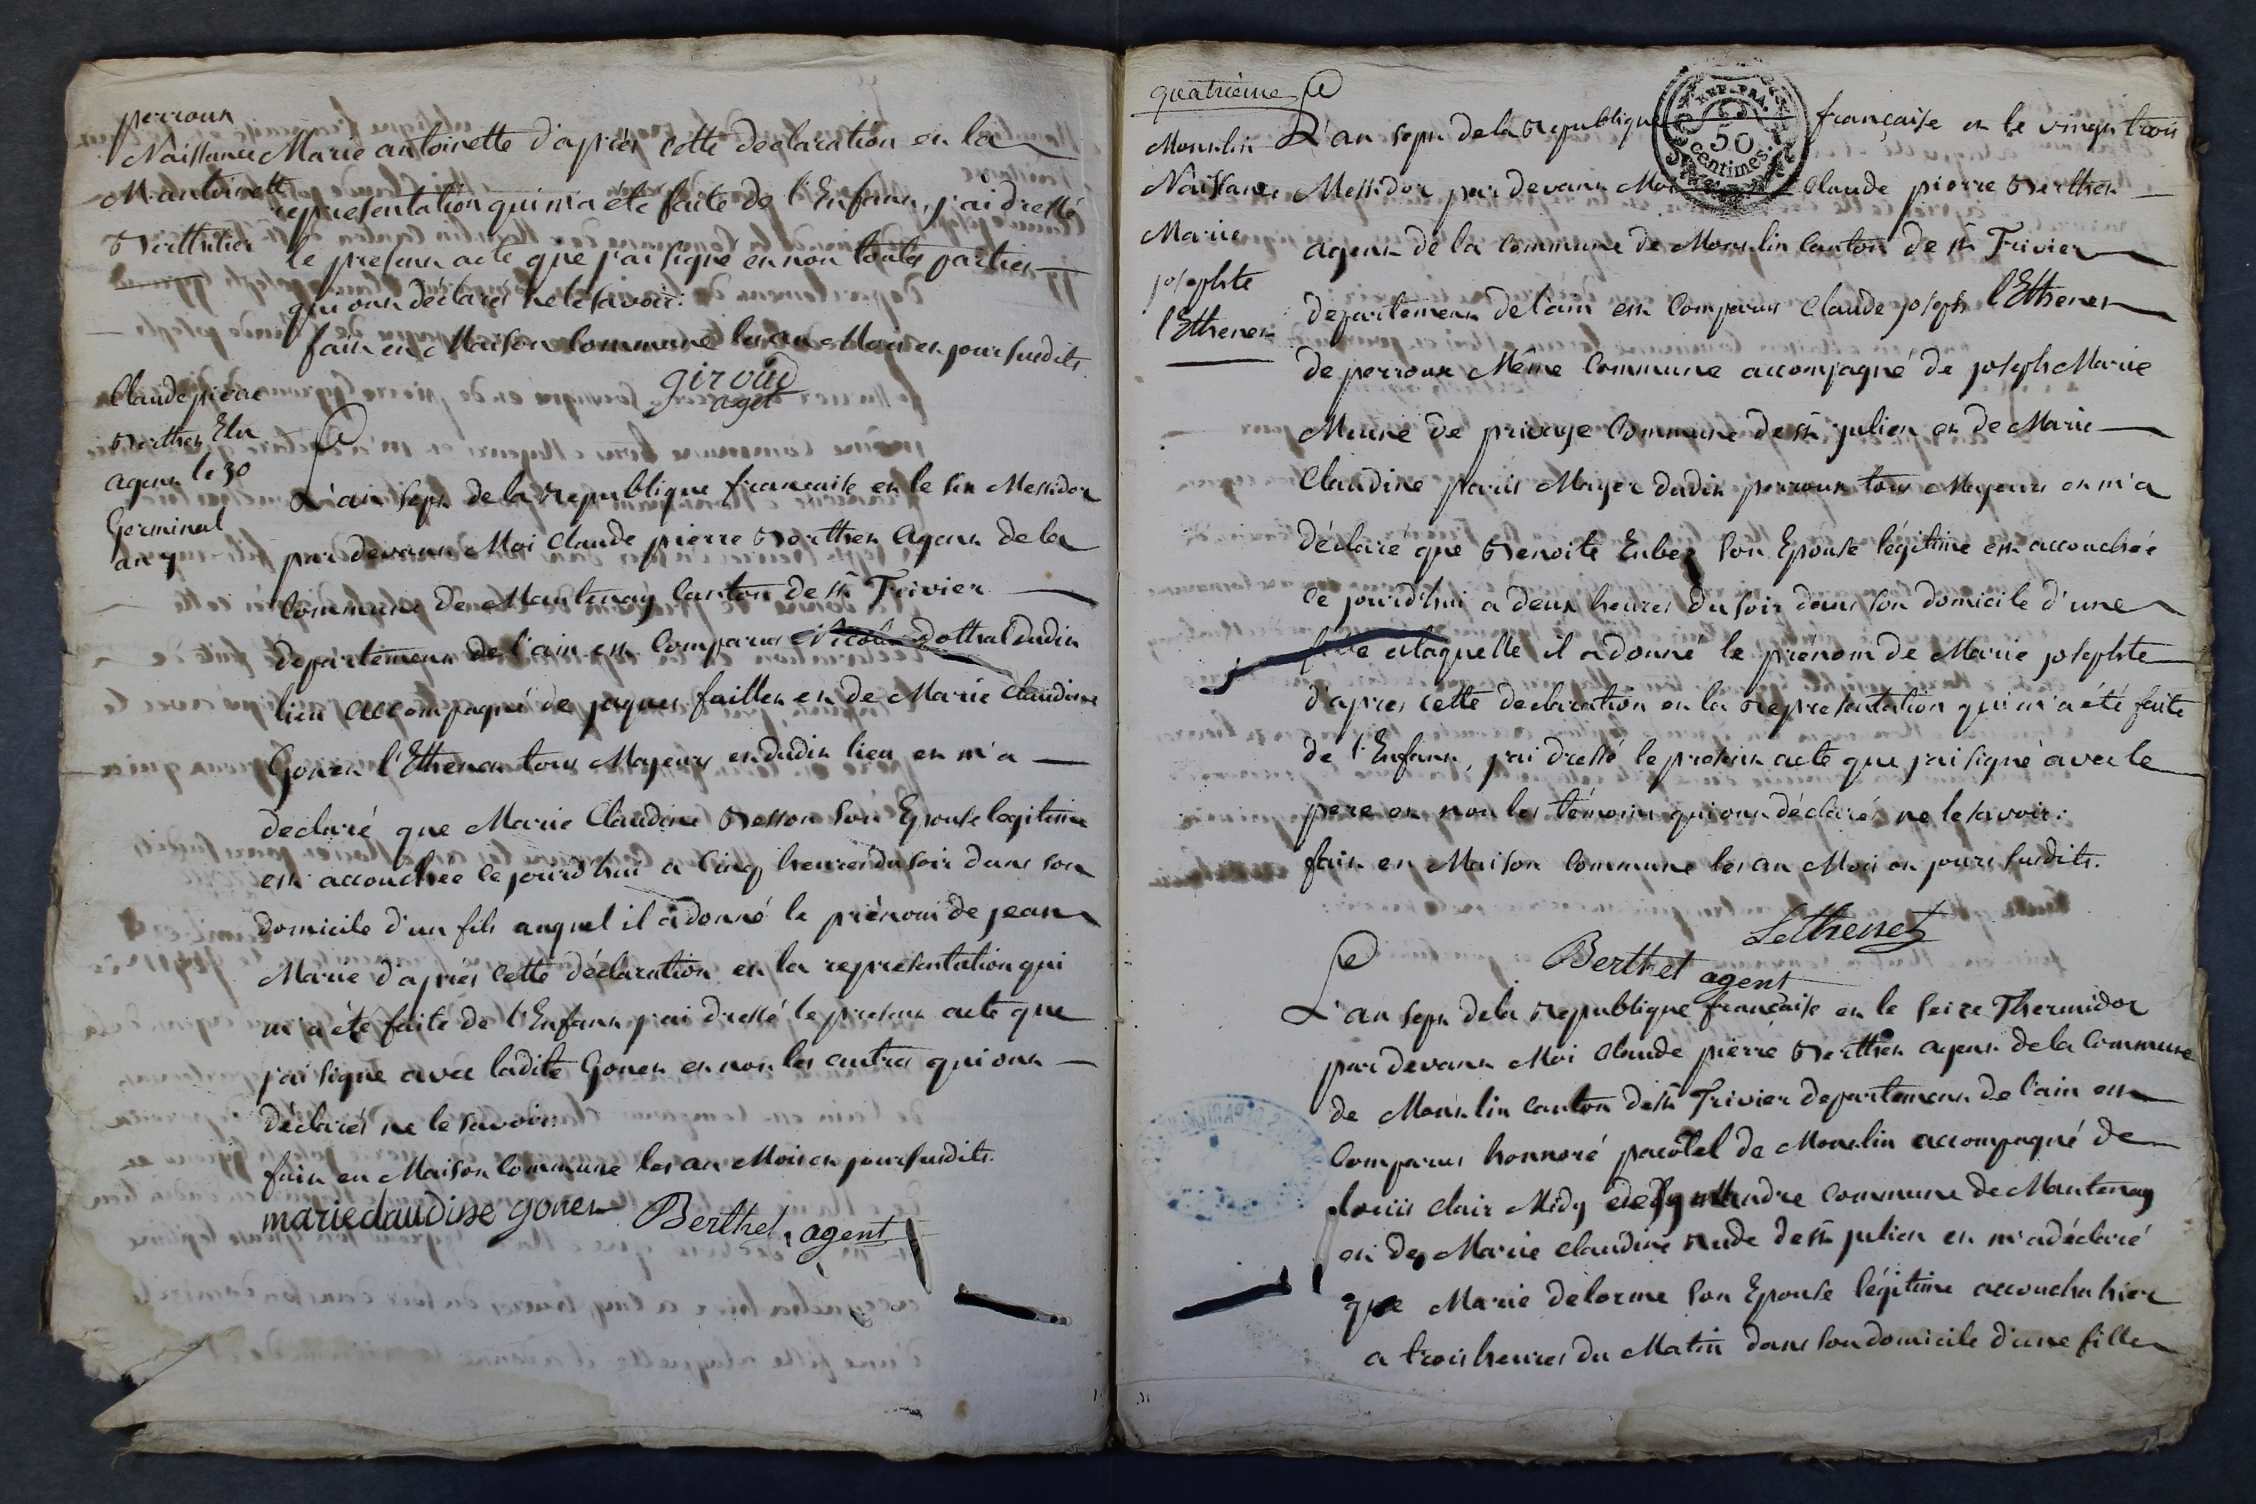 perroux
Naissance
M. antoinette
Berthelier
Marie antoinette d'après cette déclaration et la
représentation qui m'a été faite de l'Enfant, j'ai dressé
le présent acte que j'ai signé et non toutes parties
qui ont déclarés ne le savoir:
fait en Maison Commune les an Mois et jour susdits.
giroud
aget
Claude pierre
Berthet Elu
agent le 30
Germinal
an 7
L'an sept de la Republique francaise et le six Messidor
par devant Moi Claude pierre Berthet Agent de la
Commune de Mantenay Canton de st Trivier
département de l'ain est Comparus Nicolas dothal dudit
lieu accompagné de jaques faillet et de Marie Claudine
Gonet l'Ethenet tous Majeurs et dudit lieu et m'a
déclaré que Marie Claudine Besson son Epouse legitime
est accouchée ce jourd'hui a Cinq heures du soir dans son
domicile d'un fils auquel il a donné le prénom de jean
Marie d'après cette déclaration et la représentation qui
m'a été faite de l'Enfant j'ai dressé le present acte que
j'ai signé avec ladite Gonet et non les autres qui ont
déclarés ne le savoir:
fait en Maison Commune les an Mois et jour susdits.
marie claudine gonet Berthet, agent
quatrième
Monslin
Naissance
Marie
josephte
l'Ethenet
REP. FRA.
50
centimes.
L'an sept de la Republique française et le vingt trois
Messidor par devant Moi Claude pierre Berthet
agent de la Commune de Monslin Canton de st Trivier
département de l'ain est Comparus Claude joseph l'Ethenet
de perroux Même Commune accompagné de joseph Marie
de privage Commune de st julien et de Marie
Claudine paris Mayer dudit perroux tous Majeurs et m'a
déclaré que Benoite Enbez son Epouse légitime est accouchée
ce jourd'hui a deux heures du soir dans son domicile d'une
fille a laquelle il a donné le prénom de Marie josephte
d'apres cette declaration et la représentation qui m'a été faite
de l'Enfant, j'ai dressé le présent acte que j'ai signé avec le
pere et non les témoins qui ont déclarés ne le savoir:
fait en Maison Commune les an Mois et jours susdits.
Lethenet
Berthet agent
L'an sept de la Republique française et le seize Thermidor
par devant Moi Claude pierre Berthet agent de la Commune
de Monslin Canton de st Trivier departement de l'ain est
Comparus honnoré pacotel de Monslin accompagné de
Louis clair Midy Commune de Mantenay
et de Marie claudine Rude de st julien et m'a déclaré
que Marie delorme son Epouse légitime accoucha hier
a trois heures du Matin dans son domicile d'une fille